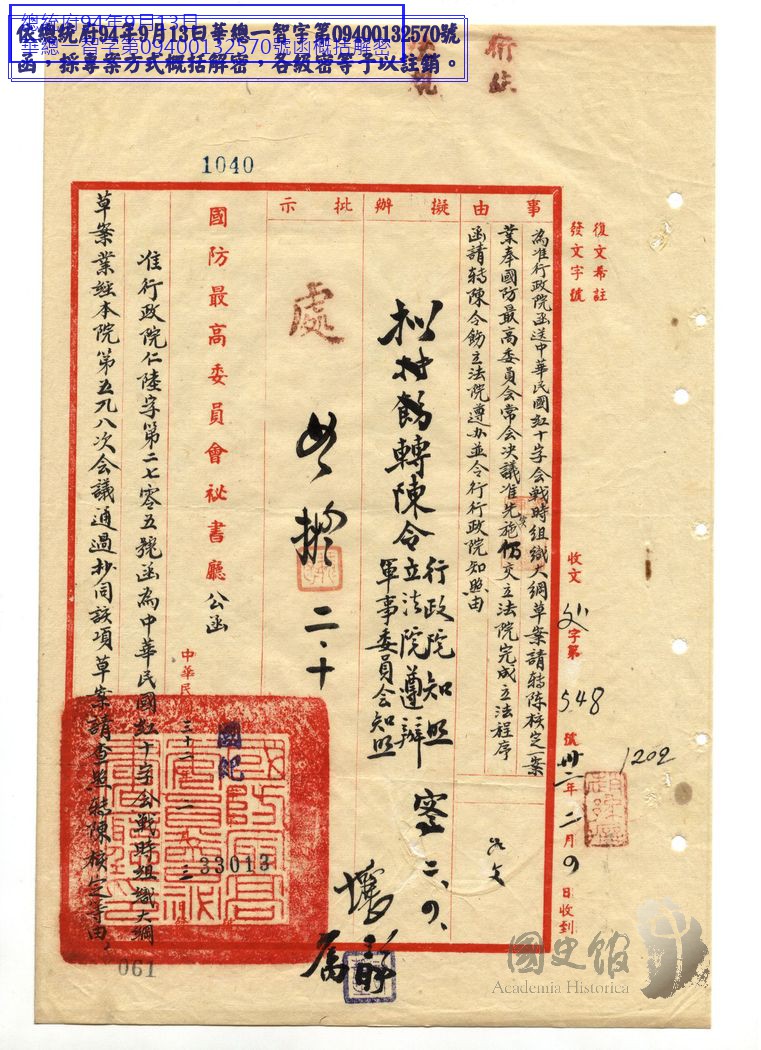 依總統府94年9月13日華總一智字第09400132570號
函，採專案方式概括解密，各級密等予以註銷。
總統府94年9月13日
華總一智字第09400132570號函概括解密
1040
復文希註
發文字號
收文
字第
548
號
卅二年二月9日收到
1202
事由
為准行政院函送中華民國紅十字会戰時組織大綱草案請轉陳核定一案
業奉國防最高委員会常会决議准先施仍交立法院完成立法程序
函請轉陳令飭立法院遵办並令行行政院知照由
擬辦
轉陳令
行政院知照
立法院遵辦
軍事委員会知照
批示
處
如擬
二、十
國防最高委員會祕書廳公函
中華民
三十二年
國紀
33013
准行政院仁陸字第二七零五號函為中華民國紅十字会戰時組織大綱
草案業經本院第五九八次会議通過抄同該項草案請查照轉陳核定等由，
061
國史館
Academia Historica